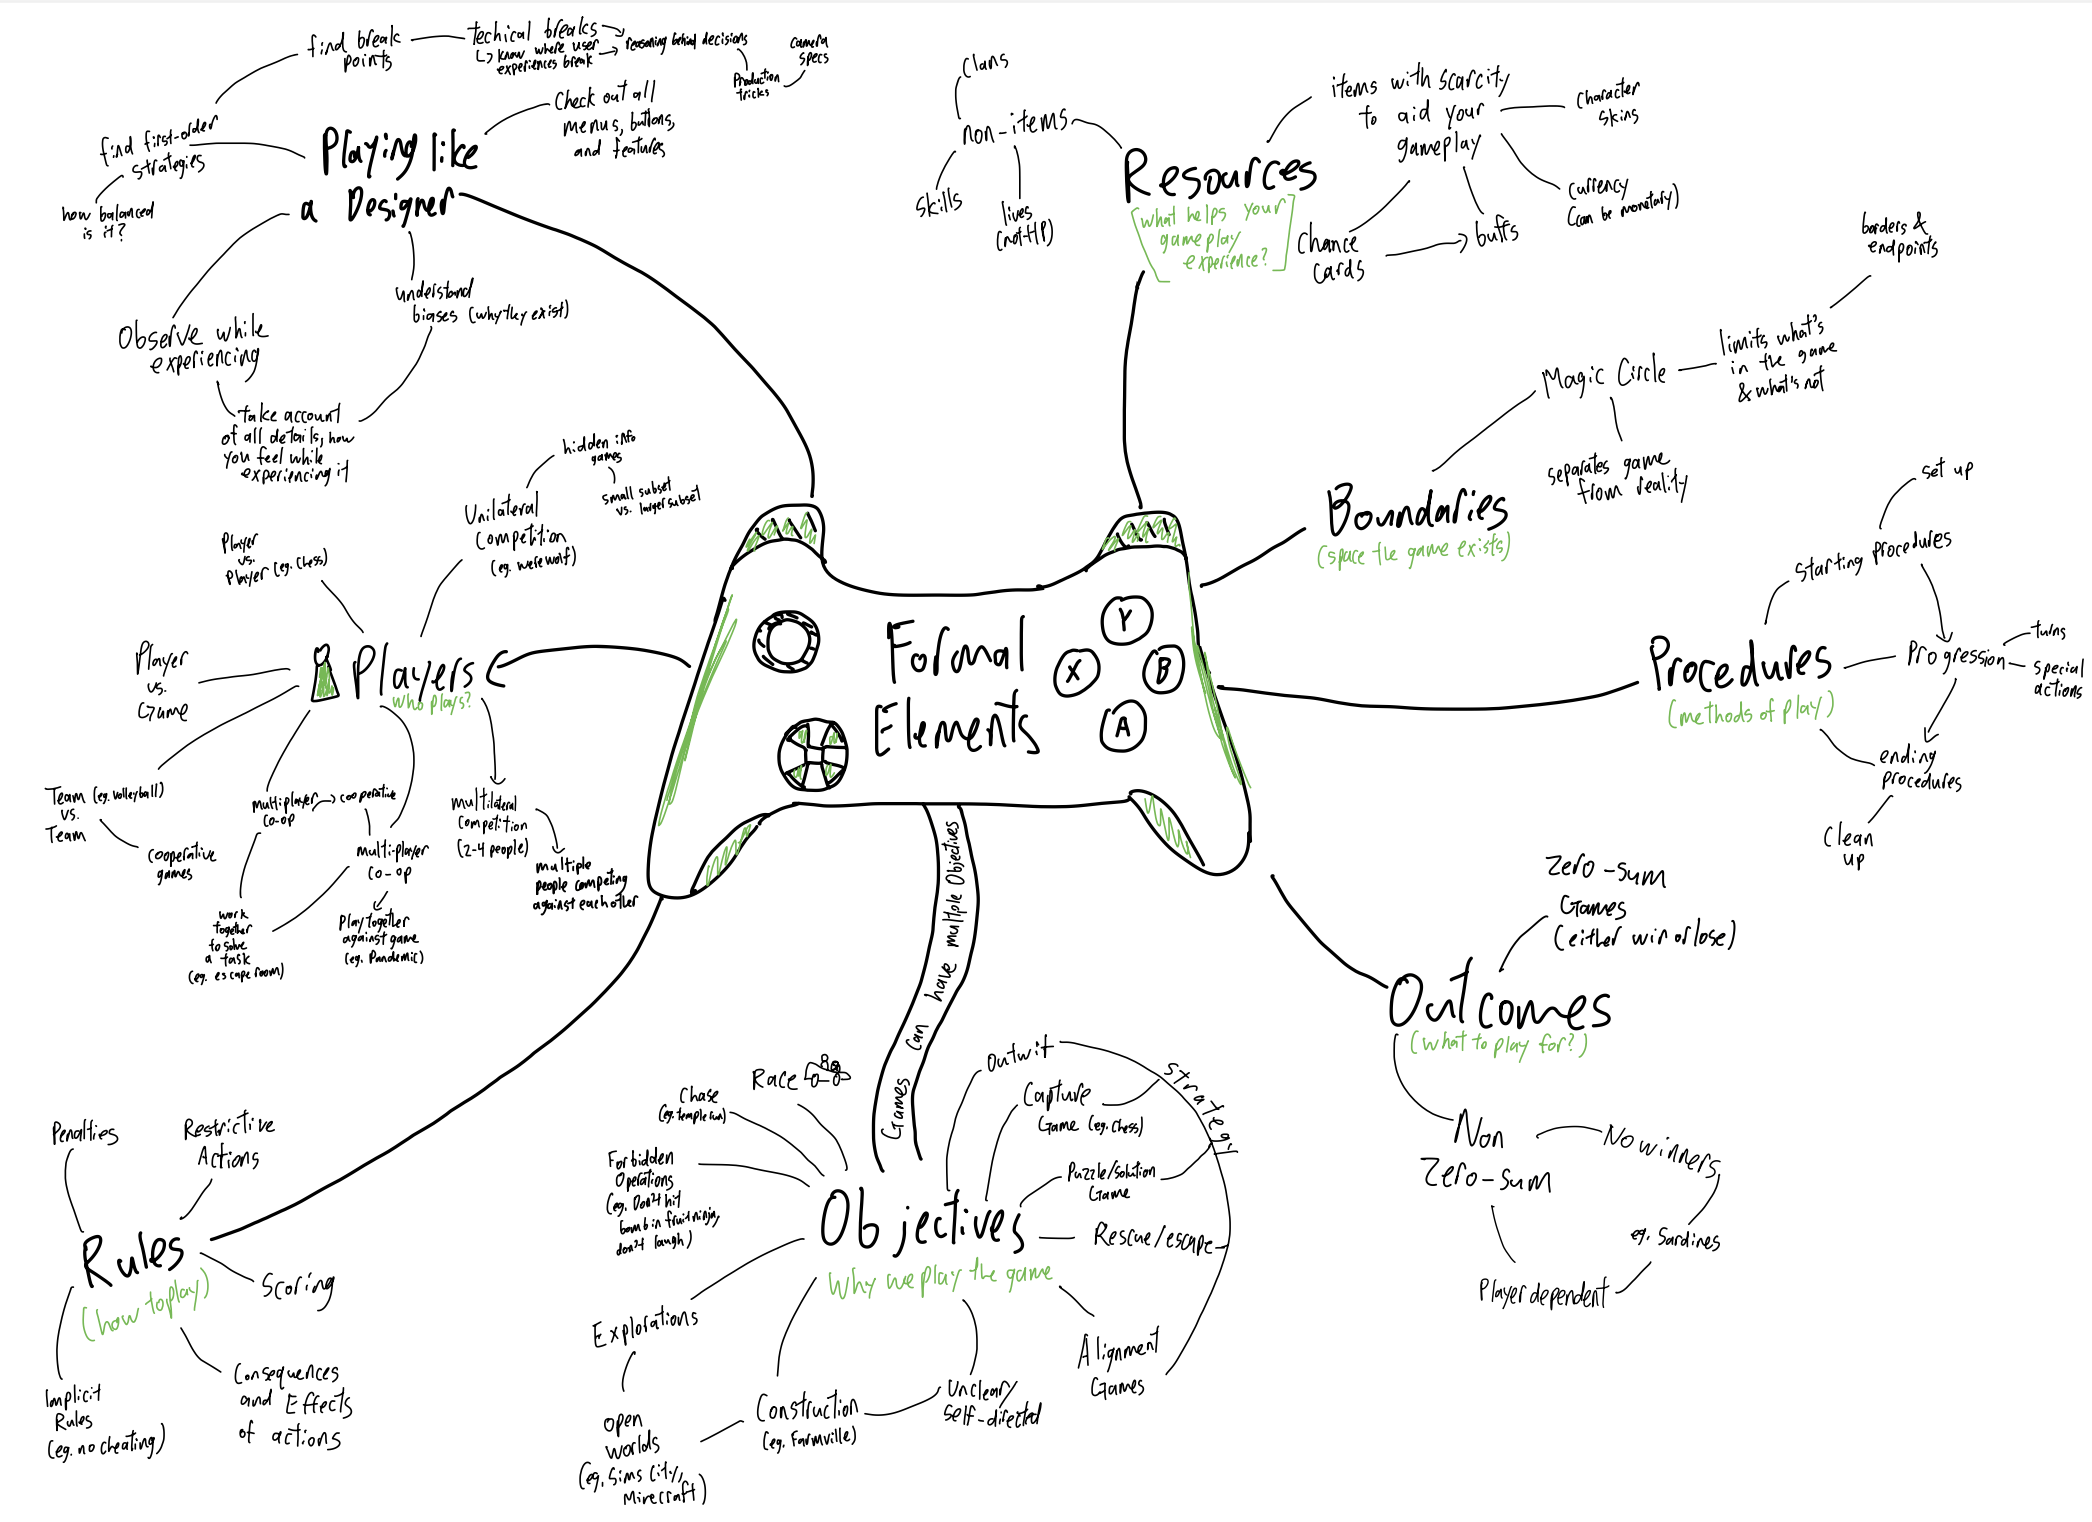 find break
points
techical breaks
↳ know where user
experiences break
reasoning behind decisions
camera
specs
Production
tricks
Check out all
menus, buttons,
and features
find first-order
strategies
how balanced
is it?
Playing like
a Designer
understand
biases (why they exist)
Observe while
experiencing
take account
of all details, how
you feel while
experiencing it
Clans
non-items
skills
lives
(not HP)
Resources
[what helps your
gameplay
experience?]
items with scarcity
to aid your
gameplay
Character
skins
currency
(can be monetary)
Chance
cards
buffs
borders &
endpoints
limits what's
in the game
& what's not
Magic Circle
separates game
from reality
Boundaries
(space the game exists)
set up
Starting procedures
Procedures
(methods of play)
Progression
turns
special
actions
ending
procedures
Clean
up
hidden info
games
small subset
vs. larger subset
Unilateral
Competition
(eg. werewolf)
Player
vs.
Player (eg. Chess)
Player
vs.
Game
Players
who plays?
Team (eg. volleyball)
vs.
Team
cooperative
games
multiplayer
co-op
cooperative
multi-player
co-op
work
together
to solve
a task
(eg. escape room)
Play together
against game
(eg. Pandemic)
multilateral
competition
(2-4 people)
multiple
people competing
against each other
Formal
Elements
Y
X
B
A
Games can have multiple Objectives
Zero-sum
Games
(either win or lose)
Outcomes
(what to play for?)
Non
Zero-sum
No winners
eg. Sardines
Player dependent
Penalties
Restrictive
Actions
Rules
(how to play)
Scoring
Implicit
Rules
(eg. no cheating)
Consequences
and Effects
of actions
Race
Chase
(eg. temple run)
Forbidden
Operations
(eg. Don't hit
bomb in fruit ninja,
don't laugh)
Outwit
Capture
Game (eg. Chess)
strategy
Puzzle/solution
Game
Objectives
Why we play the game
Rescue/escape
Explorations
Alignment
Games
open
worlds
(eg. Sims City,
Minecraft)
Construction
(eg. Farmville)
Unclear/
self-directed